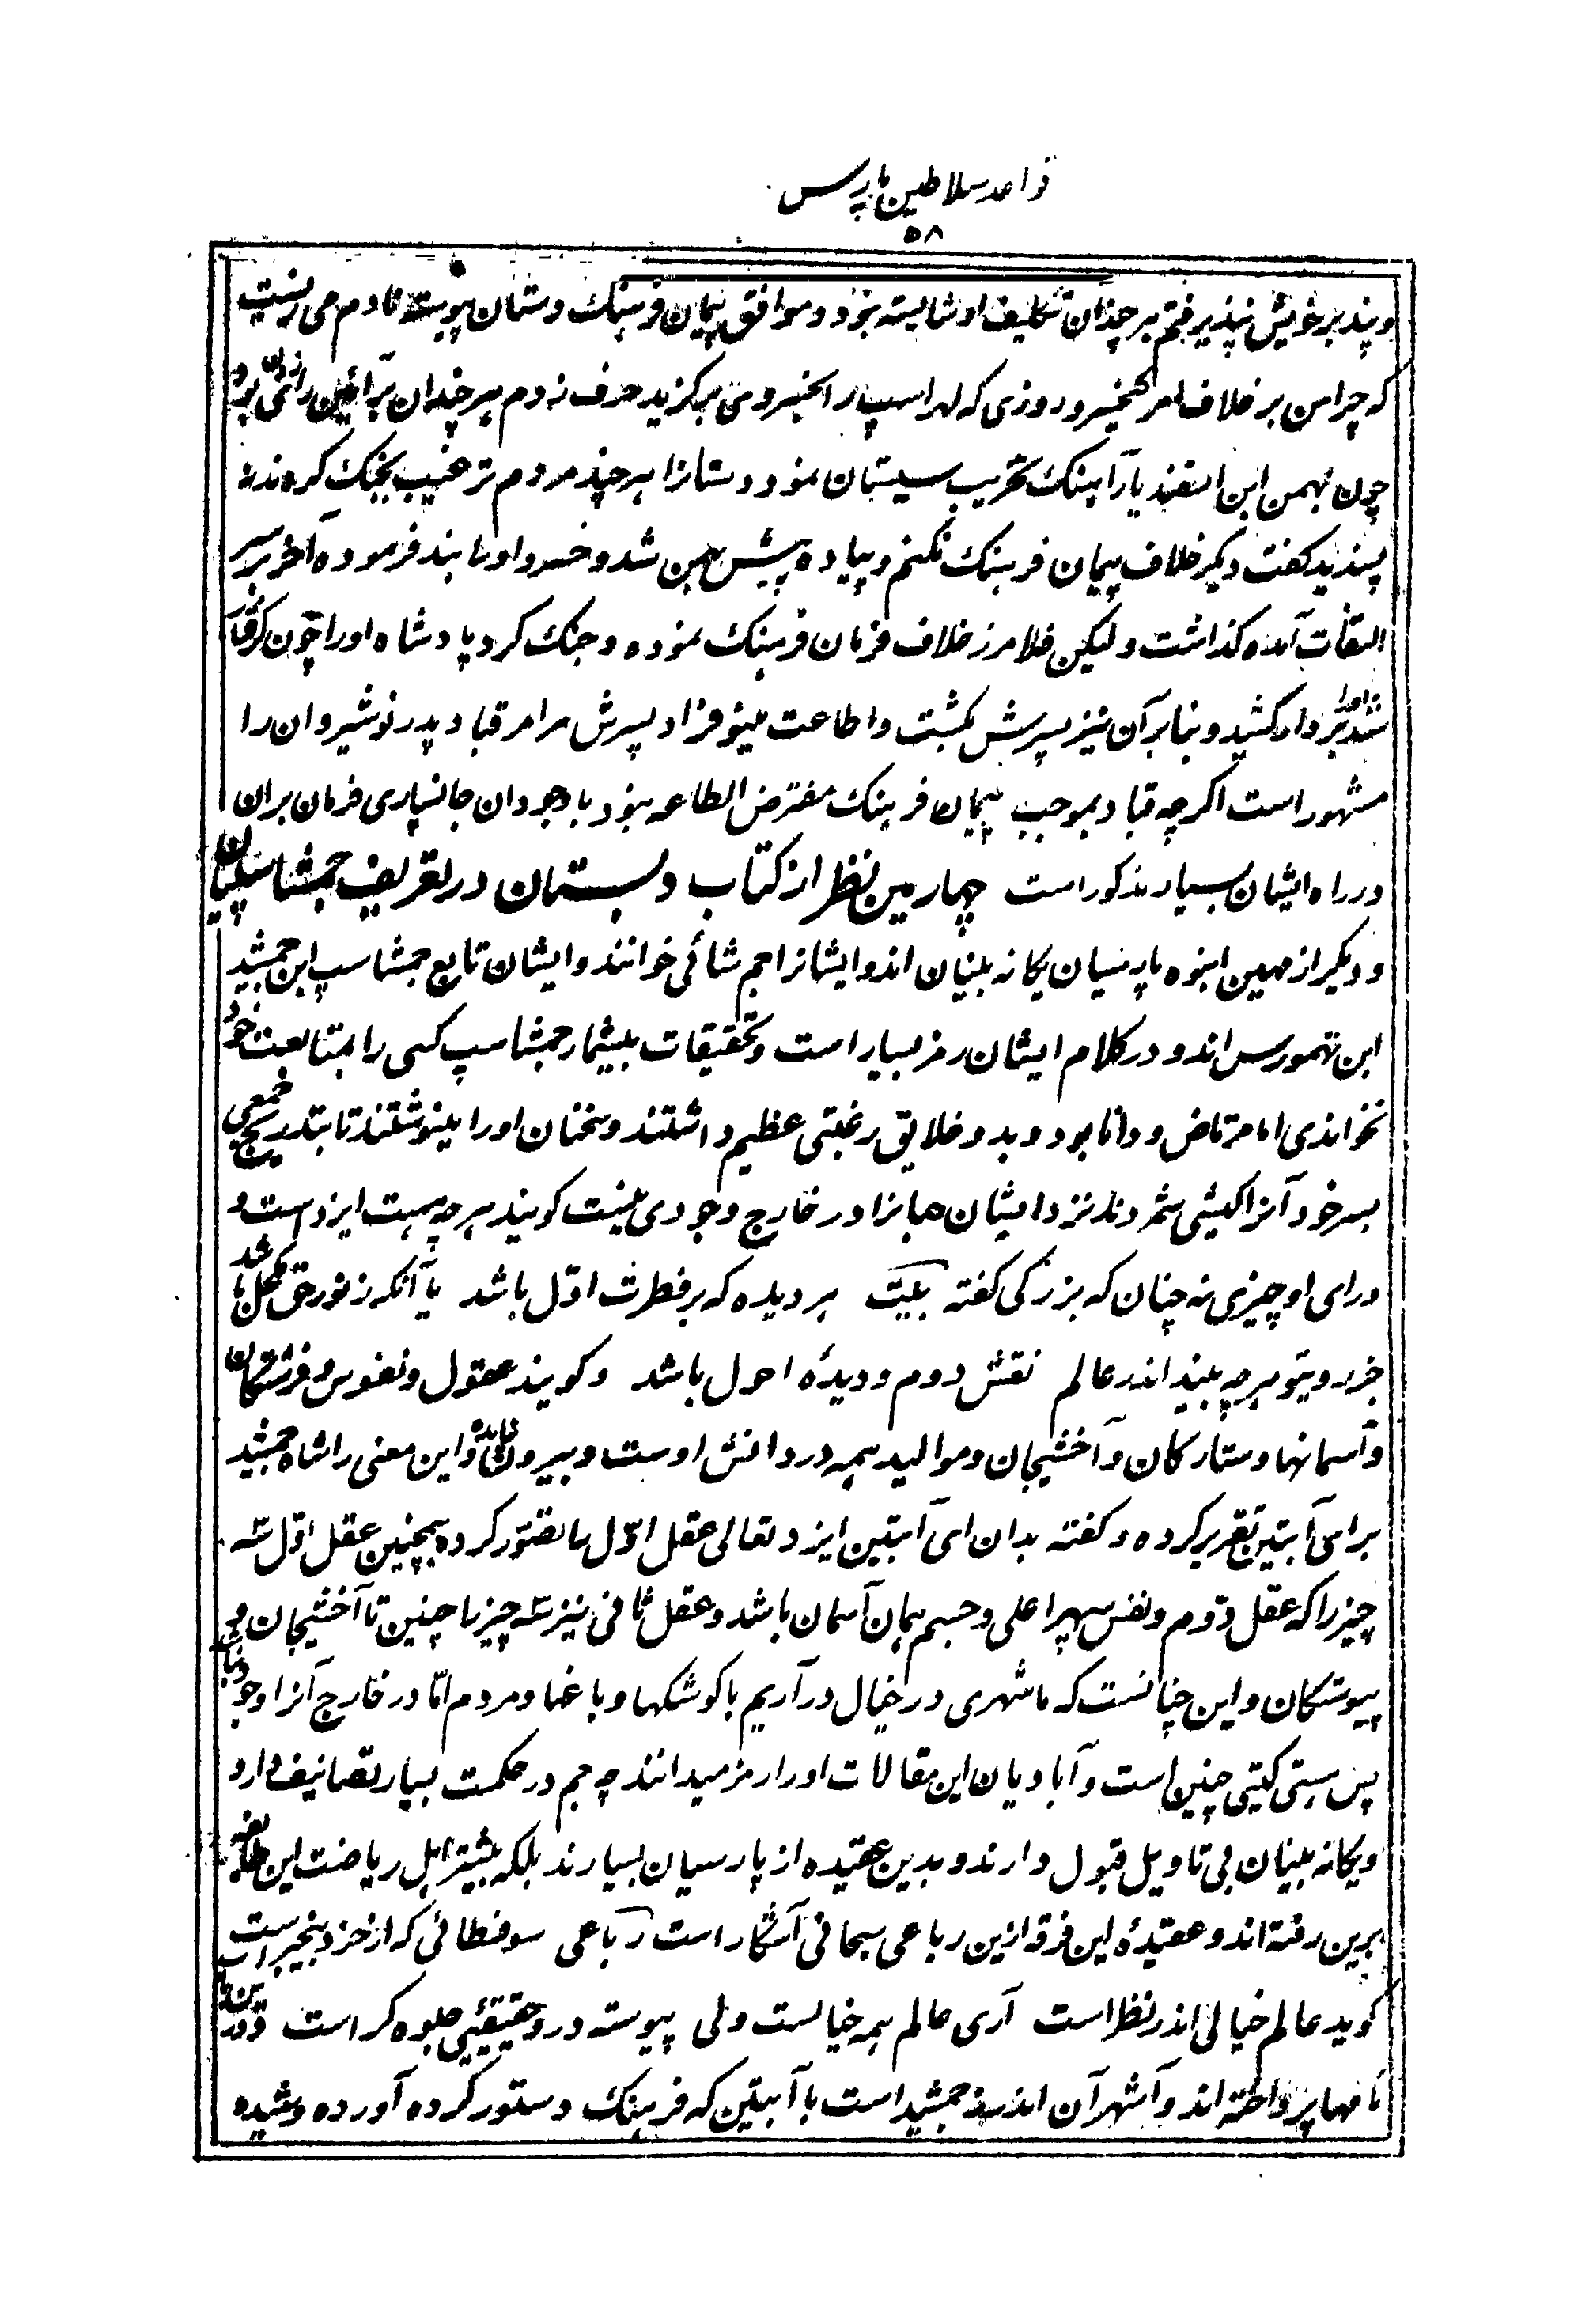 قواعد سلاطین پارس
٥٨
و پند بر خویش نپذیرفتم هر چندان تکلیف او شایسته نبود و موافق پیمان فرهنک دستان پیوسته نادم می زیست
که چرا من بر خلاف امر کیخسرو روزی که لهراسپ را بخسروی برکزید حرف زدم هر چند آن بر آئین رای زنی بود و
چون بهمن ابن اسفندیار آهنک تخریب سیستان نمود دستانرا هر چند مردم ترغیب بجنک کردند نه
پسندید کفت دیکر خلاف پیمان فرهنک نکنم و پیاده پیش بهمن شد و خسرو او را بند فرموده آخر بر سر
التفات آمده کذاشت و لیکن فلامرز خلاف فرمان فرهنک نموده و جنک کرد پادشاه او را چون کرفتار
شد بردار کشید و بنابر آن نیز پسرش بکشت و اطاعت مینوفراد پسرش مر امر قباد پدر نوشیروان را
مشهور است اکرچه قباد بموجب پیمان فرهنک مفترض الطاعه نبود با وجود آن جانسپاری فرمان بران
در راه ایشان بسیار مذکور است چهارمین نظر از کتاب دبستان در تعریف جمشاسپیان
و دیکر از مهین انبوه پارسیان یکانه بینان اند و ایشانرا جمشائی خوانند و ایشان تابع جمشاسپ ابن جمشید
ابن تهمورس اند و در کلام ایشان رمز بسیار است و تحقیقات بیشمار جمشاسپ کسی را بمتابعت خود
نخواندی اما مرتاض و دانا بود و بدو خلایق رغبتی عظیم داشتند و سخنان او را مینوشتند تا بتدریج جمعی
بسر خود آنرا کیشی شمردند نزد ایشان جهانرا در خارج وجودی نیست کویند هر چه هست ایزد است و
ورای او چیزی نه چنان که بزرکی کفته بیت هر دیده که بر فطرت اول باشد یا آنکه ز نور حق مکحل باشد
جز رویتو هر چه بیند اندر عالم نقش دوم و دیدهٔ احول باشد و کویند عقول و نفوس و فرشتکان
و آسمانها و ستارکان و آخشیجان و موالید همه در دانش اوست و بیرون نیامده و این معنی را شاه جمشید
برای آبتین تقریر کرده و کفته بدان ای آبتین ایزد تعالی عقل اول را تصور کرده همچنین عقل اول سه
چیز را که عقل دوم و نفس سپهر اعلی و جسم همان آسمان باشد و عقل ثانی نیز سه چیز را چنین تا آخشیجان و
پیوستکان و این چنانست که ما شهری در خیال در آریم با کوشکها و باغها و مردم اما در خارج آنرا وجود نباشد
پس هستی کیتی چنین است و آبادیان این مقالات او را رمز میدانند چه جم در حکمت بسیار تصانیف دارد
و یکانه بینان بی تاویل قبول دارند و بدین عقیده از پارسیان بسیارند بلکه بیشتر اهل ریاضت این طائفه
برین رفته اند و عقیدهٔ این فرقه ازین رباعی سبحانی آشکار است رباعی سوفسطائی که از خرد بیخبر است
کوید عالم خیالی اندر نظر است آری عالم همه خیالست ولی پیوسته درو حقیقتی جلوه کر است و درین
نامها پرداخته اند و آشهر آن اندرز جمشید است با آبتین که فرهنک دستور کرده آورده و شیده